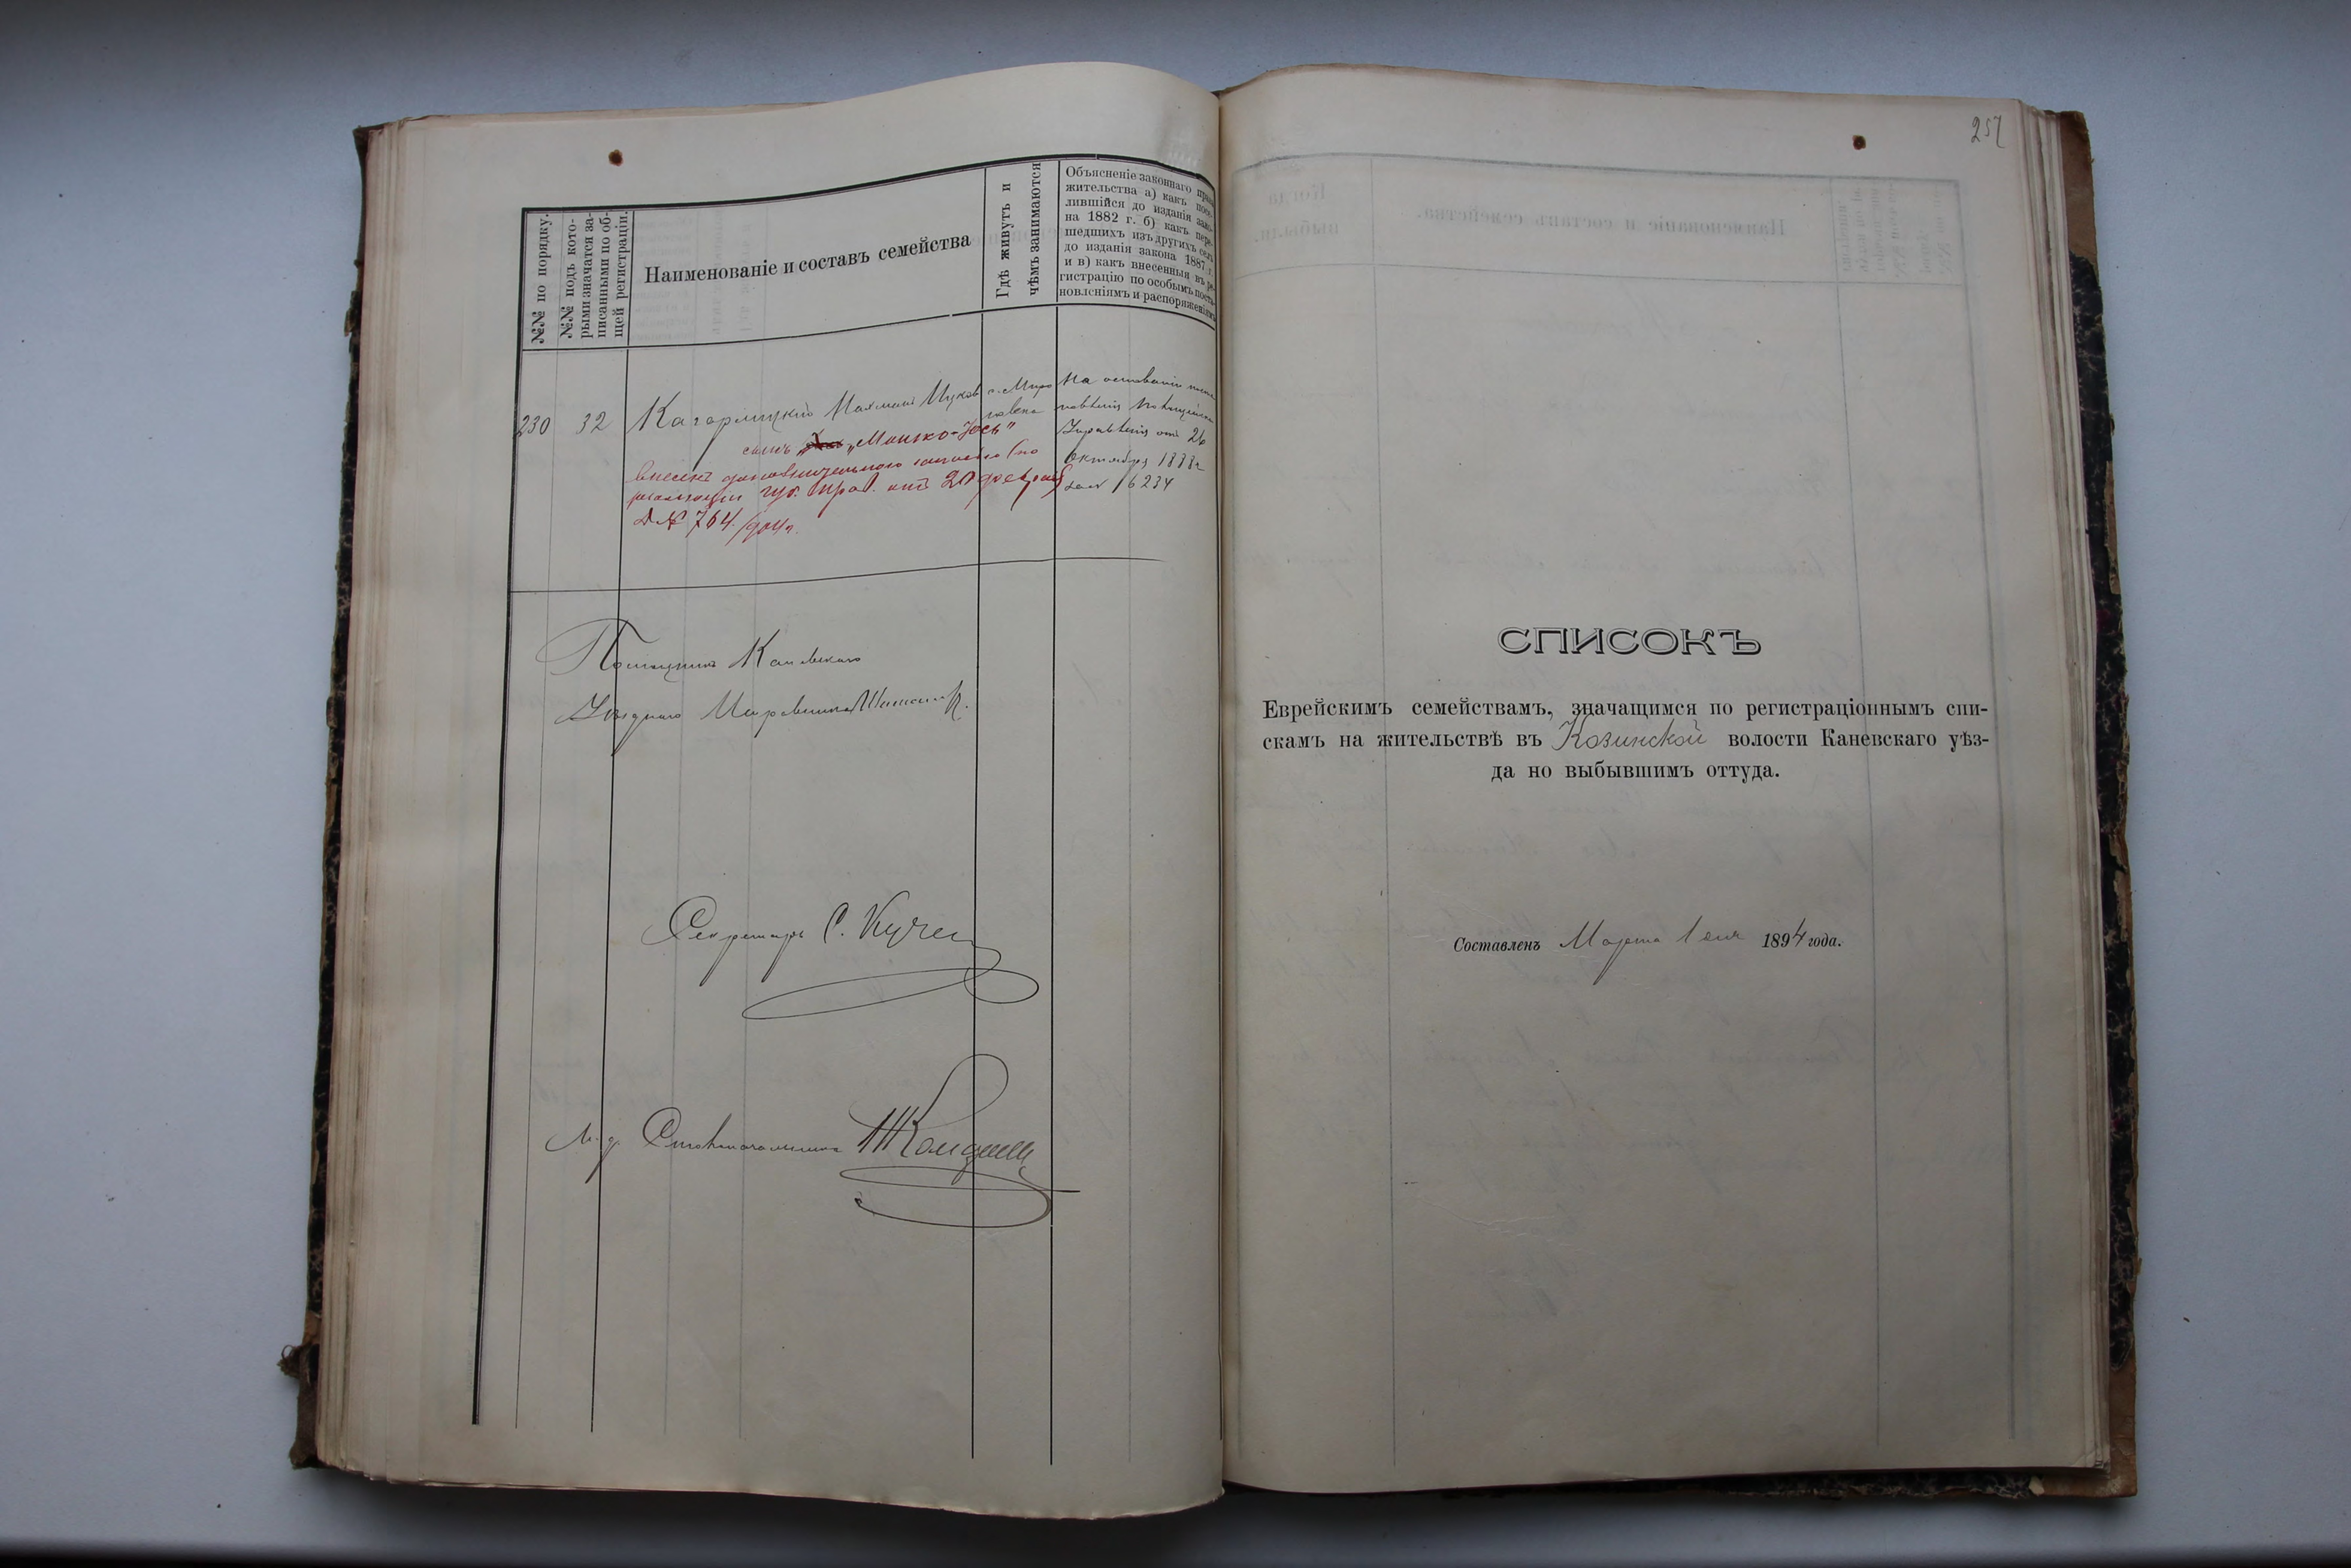 №№ по порядку.
№№ подъ кото-
рыми значатся за-
писанными по об-
щей регистраціи.
Наименованіе и составъ семейства
Гдѣ живутъ и
чѣмъ занимаются
Объясненіе законнаго права
жительства а) какъ посе-
лившійся до изданія зако-
на 1882 г. б) какъ пере-
шедшихъ изъ другихъ селъ
до изданія закона 1887 г.
и в) какъ внесенныя въ ре-
гистрацію по особымъ поста-
новленіямъ и распоряженіямъ
230 32 Кагарлицкій Нахманъ Ицков
с. Миро
повка
На основаніи поста
новленія
Управленія отъ 26
Октября 1888 г
за № 6234
сынъ „Мошко-Іось"
внесенъ дополнительного
резолюціи губ. прав. отъ 20 февраля
№ 764/904 г.
Помощникъ Каневскаго
Уѣзднаго Исправника
Секретарь С.
И. д. Столоначальника
257
СПИСОКЪ
Еврейскимъ семействамъ, значащимся по регистраціоннымъ спи-
скамъ на жительствѣ въ Козинской волости Каневскаго уѣз-
да но выбывшимъ оттуда.
Составленъ Марта 1 дня 1894 года.